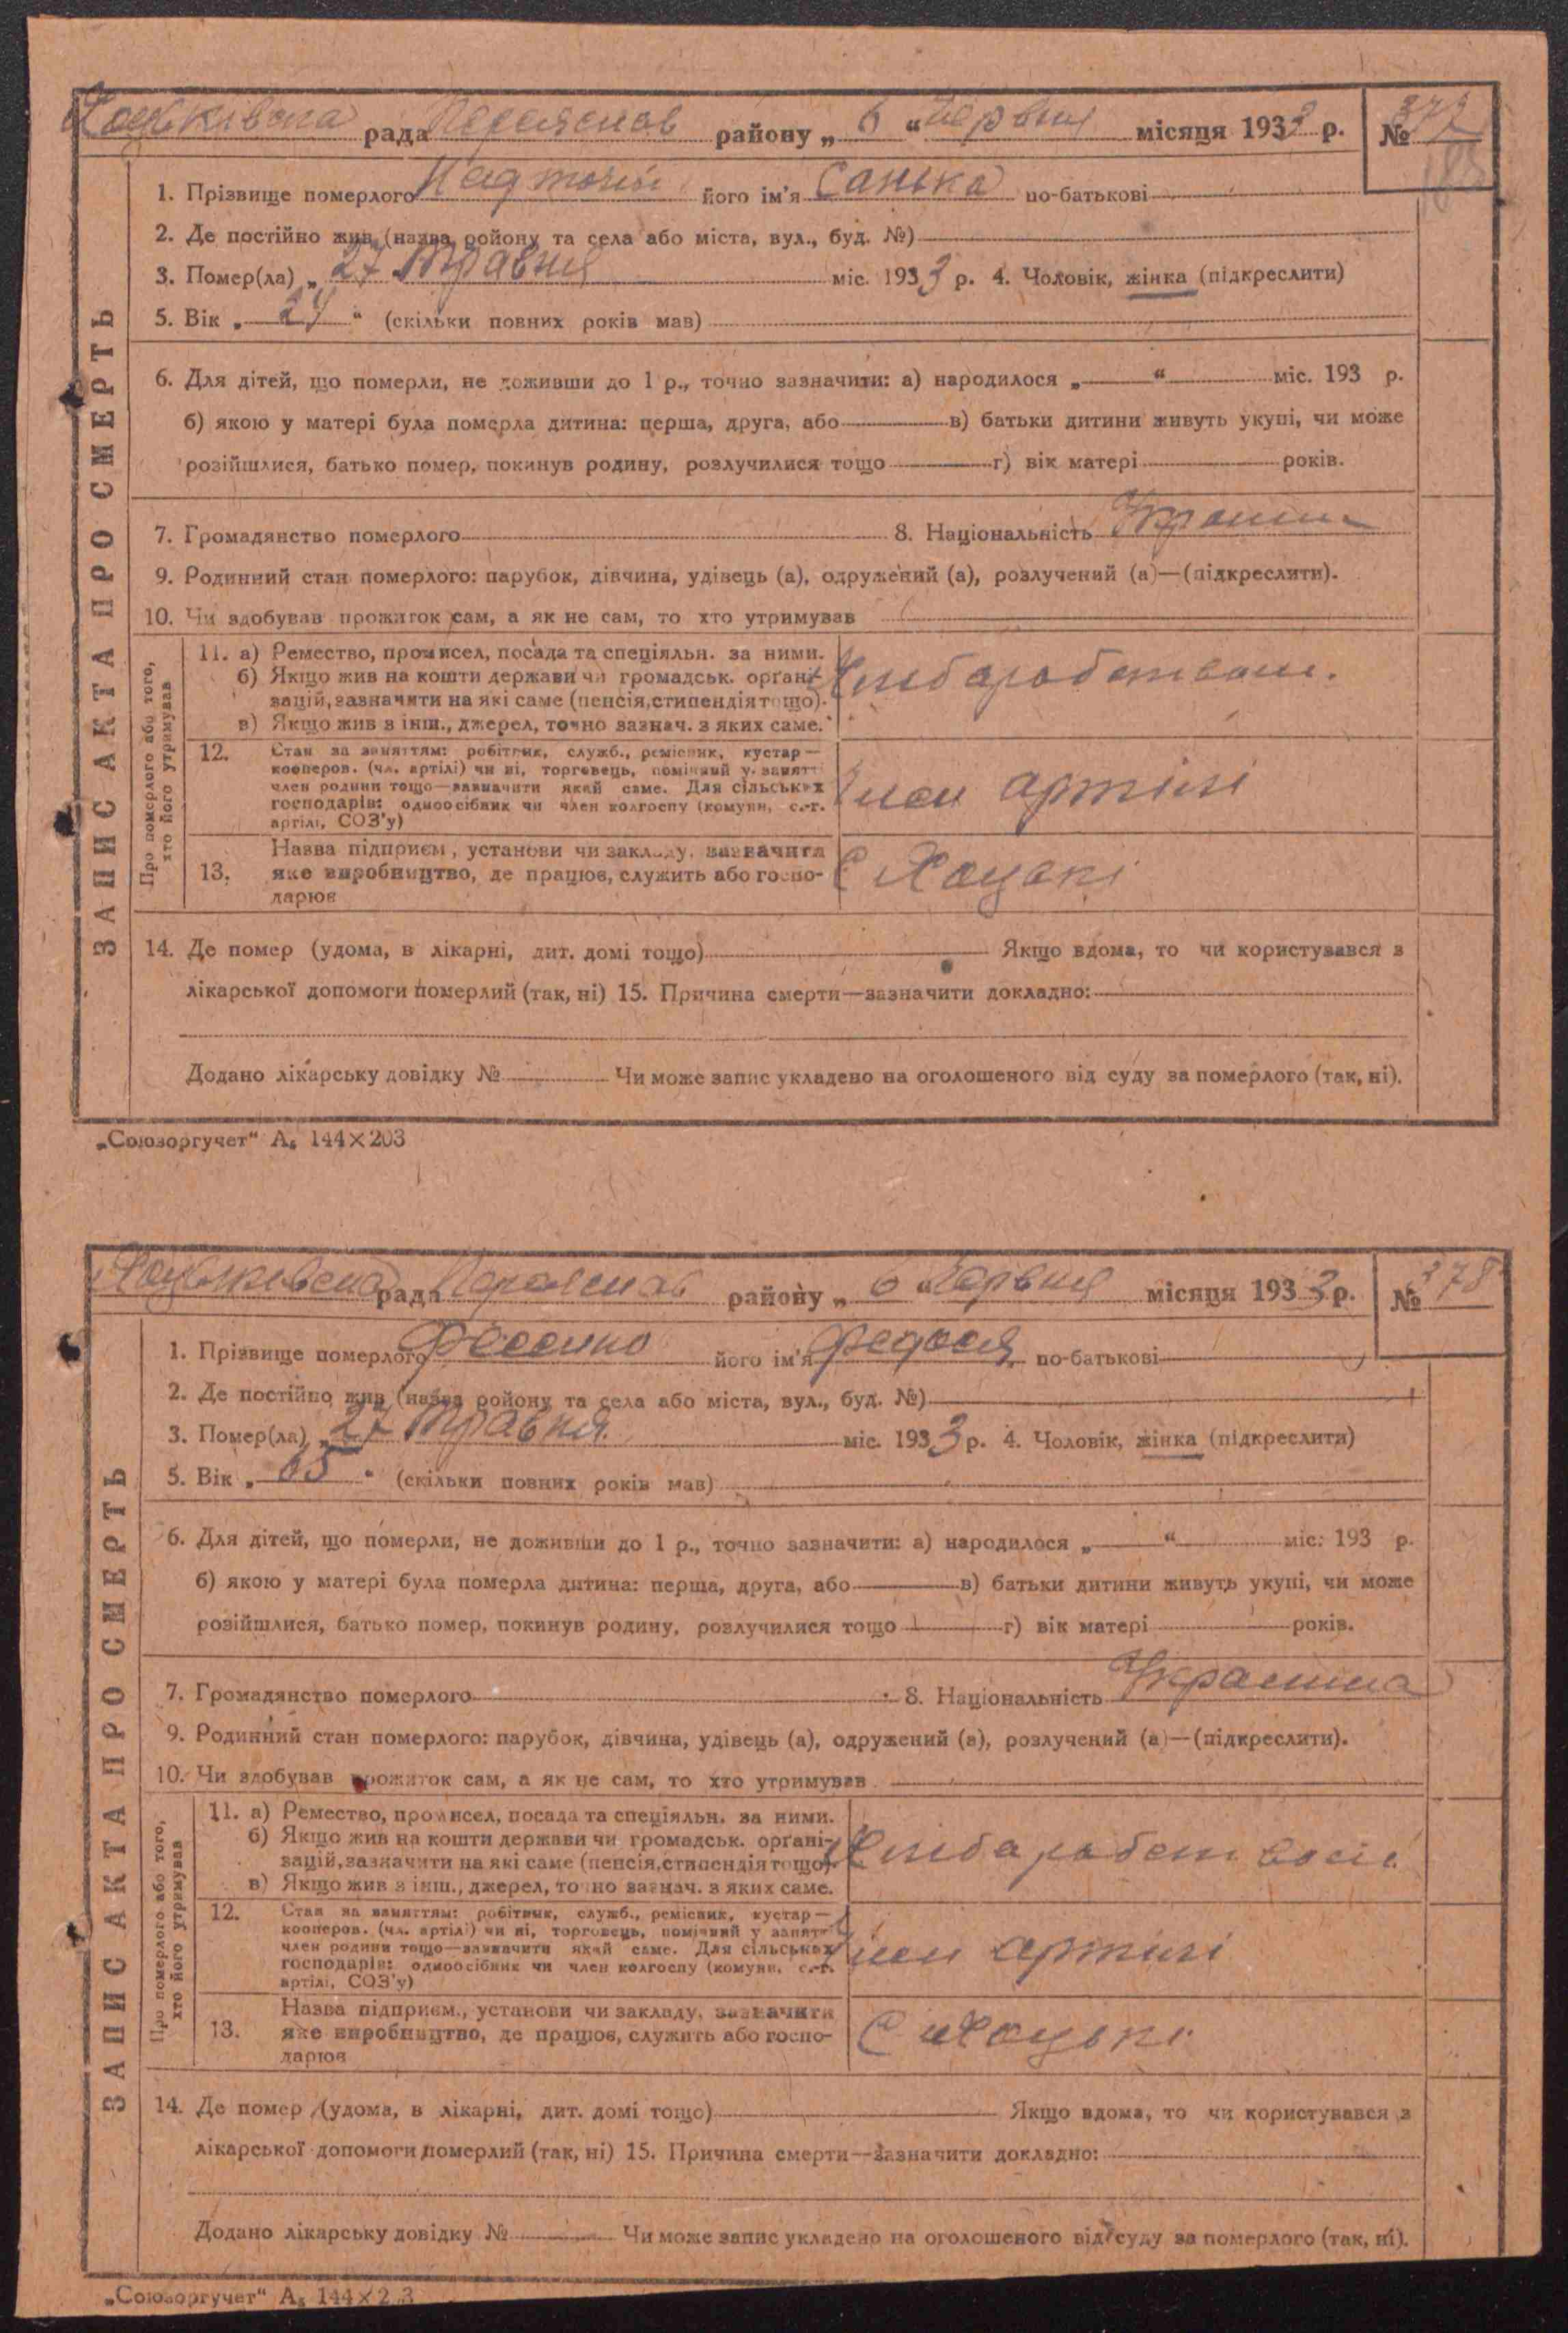 Хоцьківська рада Переяслав району „ 6 “ Червня місяця 1933 р. № 377
188
ЗАПИС АКТА ПРО СМЕРТЬ
1. Прізвище померлого Надточій його ім'я Санька по-батькові
2. Де постійно жив (назва ройону та села або міста, вул., буд. №)
3. Помер(ла) „ 27 Травня міс. 1933 р. 4. Чоловік, жінка (підкреслити)
5. Вік „ 24 “ (скільки повних років мав)
6. Для дітей, що померли, не доживши до 1 р., точно зазначити: а) народилося „ “ міс. 193 р.
б) якою у матері була померла дитина: перша, друга, або в) батьки дитини живуть укупі, чи може
розійшлися, батько помер, покинув родину, розлучилися тощо г) вік матері років.
7. Громадянство померлого 8. Національність
9. Родинний стан померлого: парубок, дівчина, удівець (а), одружений (а), розлучений (а)—(підкреслити).
10. Чи здобував прожиток сам, а як не сам, то хто утримував
Про померлого або того, хто його утримував
11. а) Ремество, промисел, посада та спеціяльн. за ними.
б) Якщо жив на кошти держави чи громадськ. орґані-
зацій, зазначити на які саме (пенсія, стипендія тощо).
в) Якщо жив з інш., джерел, точно зазнач. з яких саме.
12. Стан за заняттям: робітник, служб., ремісник, кустар—
кооперов. (чл. артілі) чи ні, торговець, помічний у занятт
член родини тощо—зазначити який саме. Для сільських
господарів: одноосібник чи член колгоспу (комуни, с.-г.
артілі, СОЗ'у)
член артілі
13. Назва підприєм., установи чи закладу, зазначити
яке виробництво, де працює, служить або госпо-
дарює
С Хоцькі
14. Де помер (удома, в лікарні, дит. домі тощо) Якщо вдома, то чи користувався з
лікарської допомоги померлий (так, ні) 15. Причина смерти—зазначити докладно:
Додано лікарську довідку № Чи може запис укладено на оголошеного від суду за померлого (так, ні).
„Союзоргучет“ А₅ 144×203
Хоцьківська рада Переяслав району „ 6 “ Червня місяця 1933 р. № 378
ЗАПИС АКТА ПРО СМЕРТЬ
1. Прізвище померлого його ім'я Федосія по-батькові
2. Де постійно жив (назва ройону та села або міста, вул., буд. №)
3. Помер(ла) „ 27 Травня міс. 1933 р. 4. Чоловік, жінка (підкреслити)
5. Вік „ 65 “ (скільки повних років мав)
6. Для дітей, що померли, не доживши до 1 р., точно зазначити: а) народилося „ “ міс. 193 р.
б) якою у матері була померла дитина: перша, друга, або в) батьки дитини живуть укупі, чи може
розійшлися, батько помер, покинув родину, розлучилися тощо г) вік матері років.
7. Громадянство померлого 8. Національність
9. Родинний стан померлого: парубок, дівчина, удівець (а), одружений (а), розлучений (а)—(підкреслити).
10. Чи здобував прожиток сам, а як не сам, то хто утримував
Про померлого або того, хто його утримував
11. а) Ремество, промисел, посада та спеціяльн. за ними.
б) Якщо жив на кошти держави чи громадськ. орґані-
зацій, зазначити на які саме (пенсія, стипендія тощо).
в) Якщо жив з інш., джерел, точно зазнач. з яких саме.
12. Стан за заняттям: робітник, служб., ремісник, кустар—
кооперов. (чл. артілі) чи ні, торговець, помічний у занятт
член родини тощо—зазначити який саме. Для сільських
господарів: одноосібник чи член колгоспу (комуни, с.-г.
артілі, СОЗ'у)
член артілі
13. Назва підприєм., установи чи закладу, зазначити
яке виробництво, де працює, служить або госпо-
дарює
С Хоцькі
14. Де помер (удома, в лікарні, дит. домі тощо) Якщо вдома, то чи користувався з
лікарської допомоги померлий (так, ні) 15. Причина смерти—зазначити докладно:
Додано лікарську довідку № Чи може запис укладено на оголошеного від суду за померлого (так, ні).
„Союзоргучет“ А₅ 144×2 3